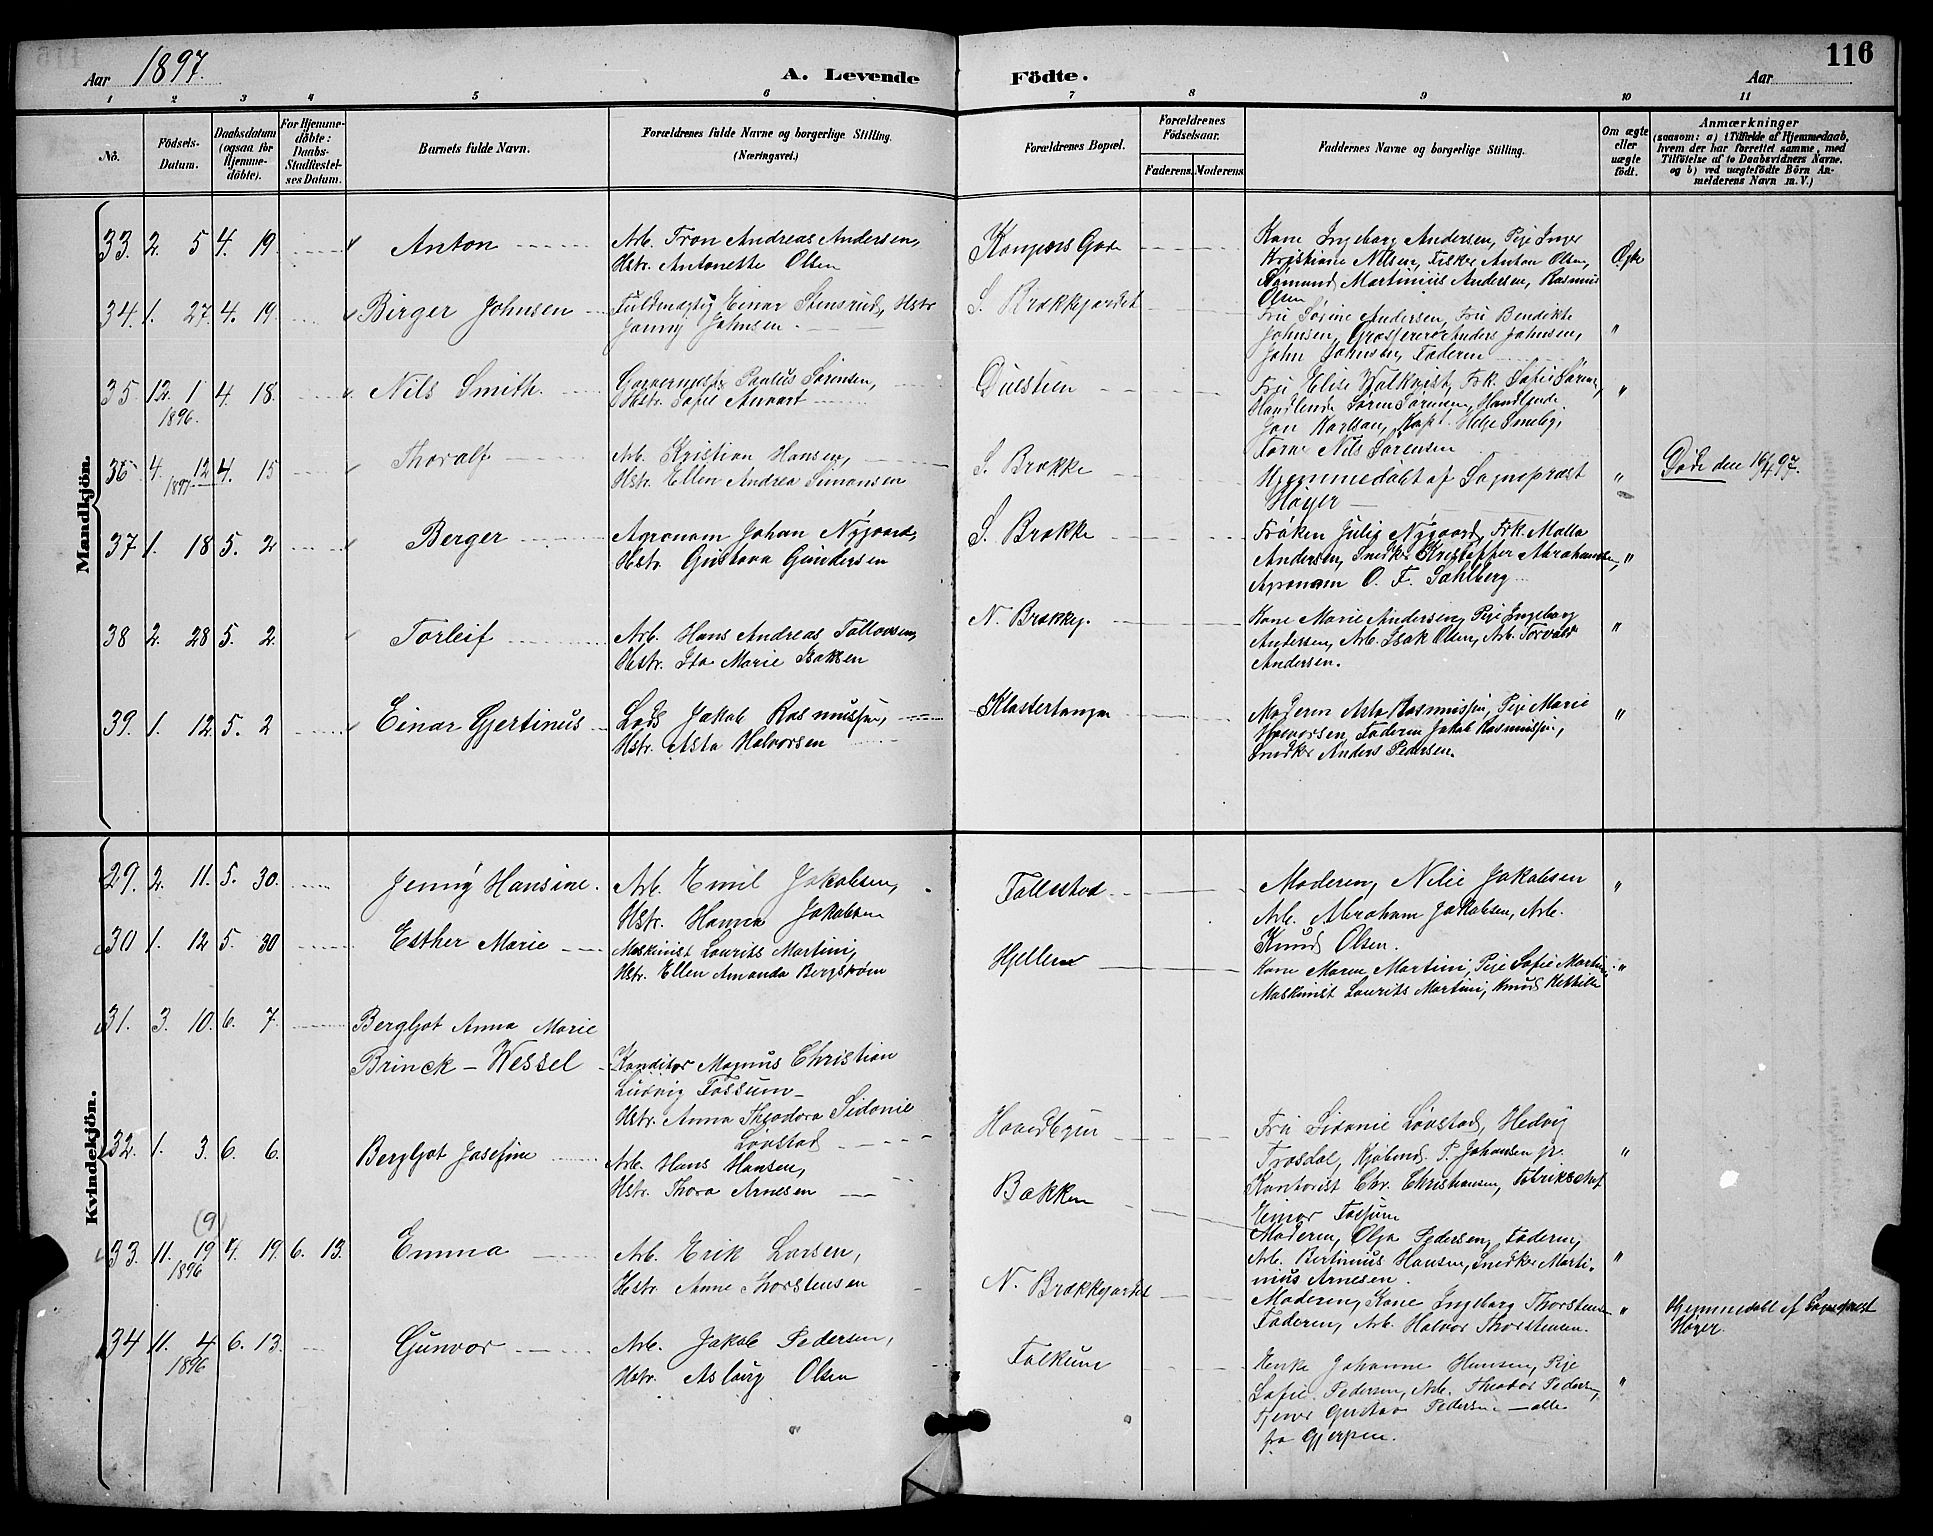 Aar 1897. A. Levende Födte. Aar 116
1 2 3 4 5 6 7 8 9 10 11
No. Födsels-Datum. Daabsdatum (ogsaa for Hjemme-döbte). For Hjemme-döbte: Daabs-Stadfæstel-ses Datum. Barnets fulde Navn. Forældrenes fulde Navne og borgerlige Stilling. (Næringsvei.) Forældrenes Bopæl. Forældrenes Födselsaar. Faderens. Moderens. Faddernes Navne og borgerlige Stilling. Om ægte eller uægte födt. Anmærkninger (saasom: a) i Tilfælde af Hjemmedaab, hvem der har forrettet samme, med Tilföielse af to Daabsvidners Navne. og b) ved uægtefödte Börn An-melderens Navn m. V.)
Mandkjön.
33. 2. 5 4. 19 Anton Arb. Tron Andreas Andersen, Kongens Gade Kone Ingeborg Andersen, Pige Inger
Hstr. Antonette Olsen Kristiane Nilsen, Fisker Anton Olsen, Ægte
Sømand Martinius Andersen, Rasmus
Olsen
34. 1. 27. 4. 19 Birger Johnsen Fuldmægtig Einar Stensrud, Hstr. S. Brækkejordet Fru Sørine Andersen, Fru Bendikte
Jenny Johnsen. Johnsen, Grosserer Anders Johnsen, "
John Johnsen, Faderen
35 12. 1 4. 18. Nils Smith. Garvermest. Paulus Sørensen, Duestien Fru Elise Walkvist, Frk. Sofie Søren,
1896. Hstr. Sofie Handlende Søren Sørensen, Handlende "
Jon Karlsen, Kapt. Helge Smebg,
Nils Sørensen
36 4. 12 4. 15 Thoralf Arb. Kristian Hansen, S. Brække Hjemmedøbt af Sogneprest " Døde den 16/4 97.
1897 Hstr. Ellen Andrea Simonsen Høyer
37 1. 18 5. 2 Berger Agronom Johan Nygaard, S. Brække Frøken Julie Nygaard, Frk. Malla
Hstr. Gustava Gundersen Andersen, Snedker Kristoffer Abrahamsen, "
Agronom O. F. Sahlberg
38 2. 28 5. 2. Torleif Arb. Hans Andreas Tollovsen, N. Brækkeg. Kone Marie Andersen, Pige Ingeborg
Hstr. Ida Marie Isaksen Andersen, Arb. Isak Olsen, Arb. Torvald "
Andersen.
39. 1. 12. 5. 2 Einar Gjertinus Lods Jakob Rasmussen, Klostertangen Moderen Asta Rasmussen, Pige Marie
Hstr. Asta Halvorsen Halvorsen, Faderen Jakob Rasmussen, "
Snedker Anders Pedersen.
Kvindekjön.
29. 2. 11. 5. 30. Jenny Hansine. Arb. Emil Jakobsen, Follestad Moderen, Nilie Jakobsen "
Hstr. Hanna Jakobsen Arb. Abraham Jakobsen, Arb.
Knud Olsen.
30 1. 12 5. 30 Esther Marie Maskinist Laurits Martini, Hjellen Kone Maren Martini, Pige Sofie Martini "
Hstr. Ellen Amanda Bergstrøm Maskinist Laurits Martini, Knud Kittilsen
31. 3. 10. 6. 7. Bergljot Anna Marie
Brinck-Wessel Konditor Magnus Christian
Ludvig Fossum
Hstr. Anna Theodora Sidonie Hovedbyen Fru Sidonie Løvstad, Hedvig
Løvstad Frosdal, Kjøbmd. P. Johansen jr. "
32. 1. 3. 6. 6. Bergljot Josefine Arb. Hans Hansen, Bakken Kontorist Chr. Christiansen, Fabrikschef
Hstr. Thora Arnesen Einar Fossum
Moderen, Olga Pedersen, Faderen,
Arb. Bertinius Hansen, Snedker Marti- "
nius Arnesen.
33. 11. 19 (9) 4. 19. 6. 13. Emma Arb. Erik Larsen, N. Brækkejordet Moderen, Kone Ingeborg Thorstensen " Hjemmedøbt af Sogneprest
1896 Hstr. Anne Thorstensen Faderen, Arb. Halvor Thorstensen. Høyer.
34 11. 4 6. 13. Gunvor Arb. Jakob Pedersen, Falkum Enke Johanne Hansen, Pige
1896 Hstr. Aslaug Olsen Sofie Pedersen, Arb. Theodor Pedersen, "
Tjener Gustav Pedersen — alle
fra Gjerpen.